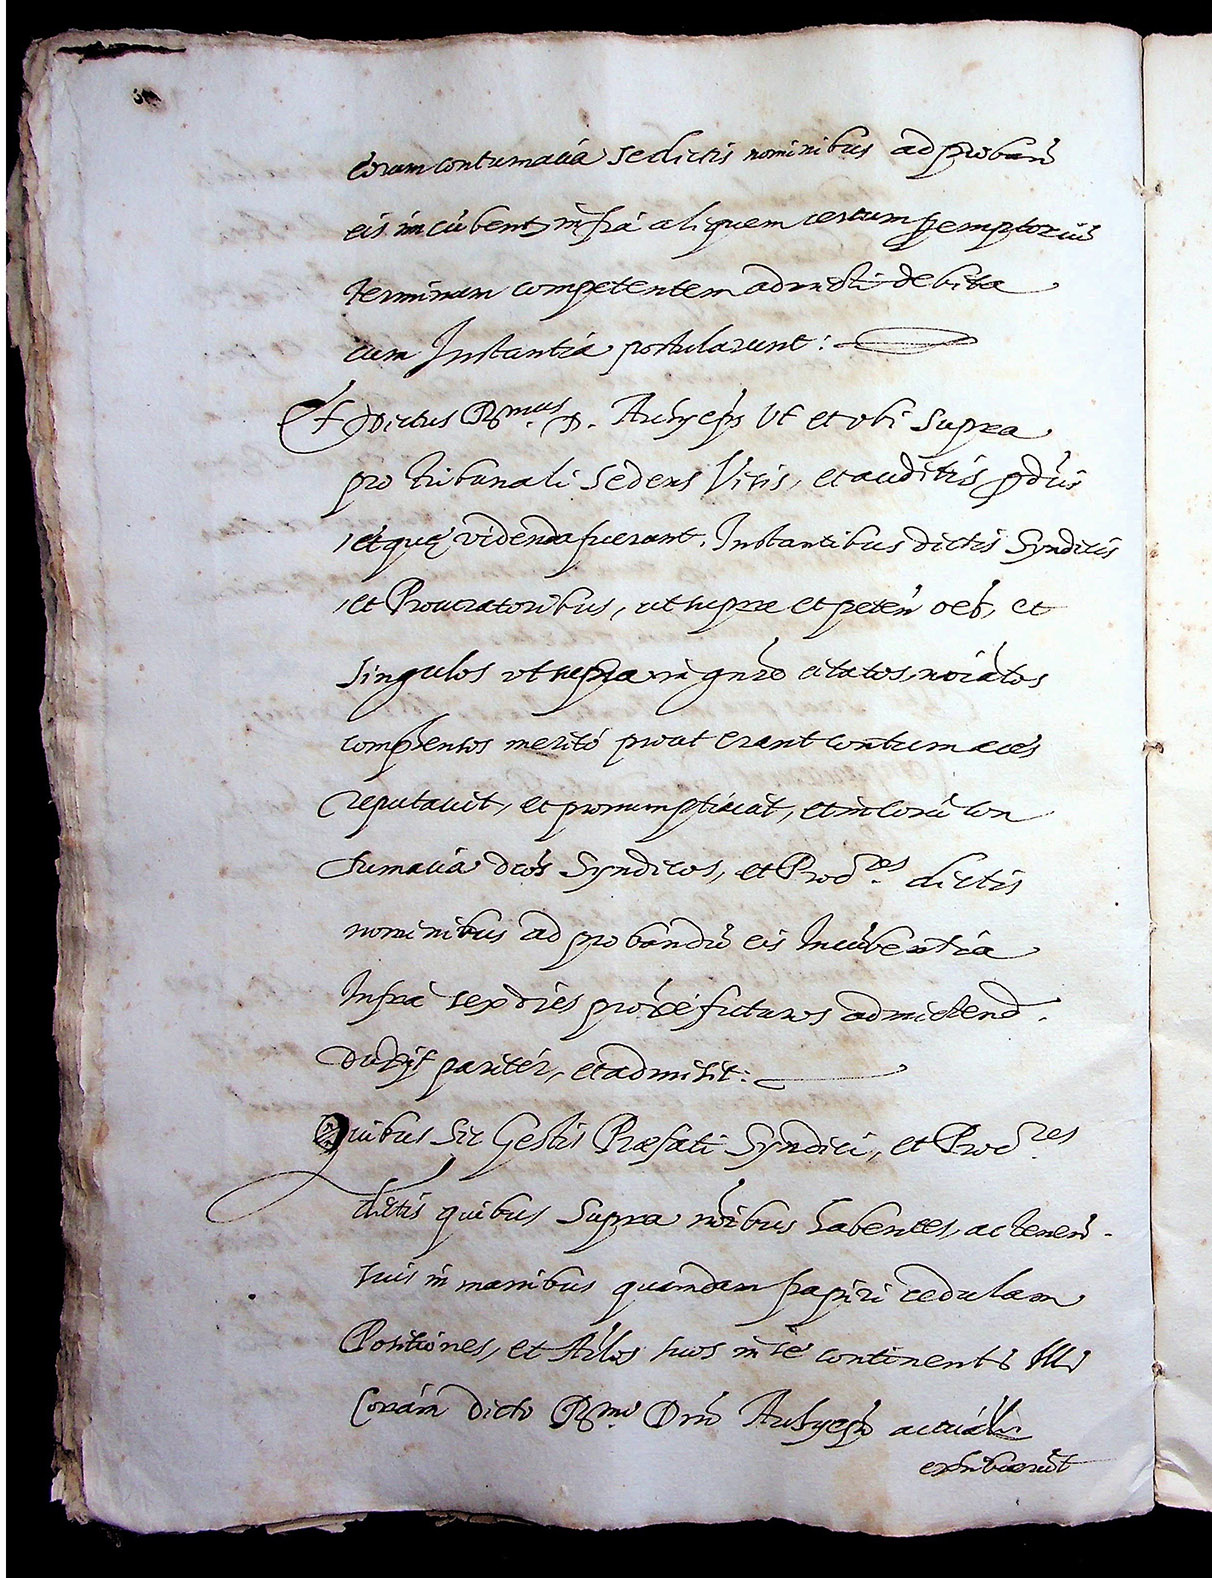 eorum contumacia se dictis nominibus ad proband̄
eis incūbent, infra aliquem certum p̱emptoriū
terminum competentem admitti debita
cum Instantia postularunt:
Et Dictus R.mus D. Archyep̄s Ut et vbi Supra
pro tribunali Sedens Visis, et auditis p̱dictis
et quę videnda fuerant, Instantibus dictis Syndicis
et Procuratoribus, ut supra et peteñ oēs, et
singulos ut supra in genere citatos, noiātos
comp̱entos meritò prout erant contumaces
reputavit, et pronumptiavit, et in eorū con
tumacia dictos Syndicos, et Procres dictis
nominibus ad probandū eis Incūbentia
Infra sex dies proxē futuros admittend.
duxit pariter, et admisit:
Quibus Sic Gestis Præfati Syndici, et Procres
dictis quibus Supra nōibus habentes, ac teneñ.
suis in manibus quamdam papiri cedulam
Positiones, et Artlos suos in se continentē Illā
Coram dicto R.mo Dño Archyep̄o actualr̄
exhibuerūt